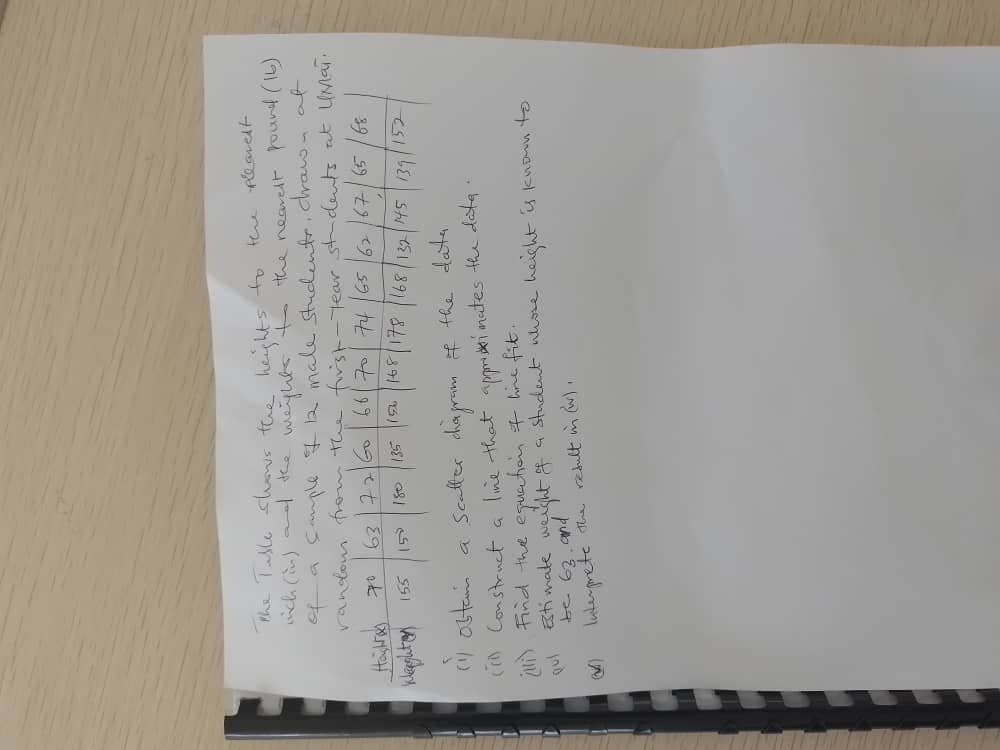 The Table shows the heights to the nearest
inch (in) and the weights to the nearest pound (lb)
of a sample of 12 male students, drawn at
random from the first-Year students at UMaT.
Height(x) 70 63 72 60 66 70 74 65 62 67 65 68
Weight(y) 155 150 180 135 156 168 178 168 132 145 139 152
(i) Obtain a scatter diagram of the data
(ii) Construct a line that approximates the data.
(iii) Find the equation of line fit.
(iv) Estimate weight of a student whose height is known to
be 63. and
(v) Interprete the result in (iv).